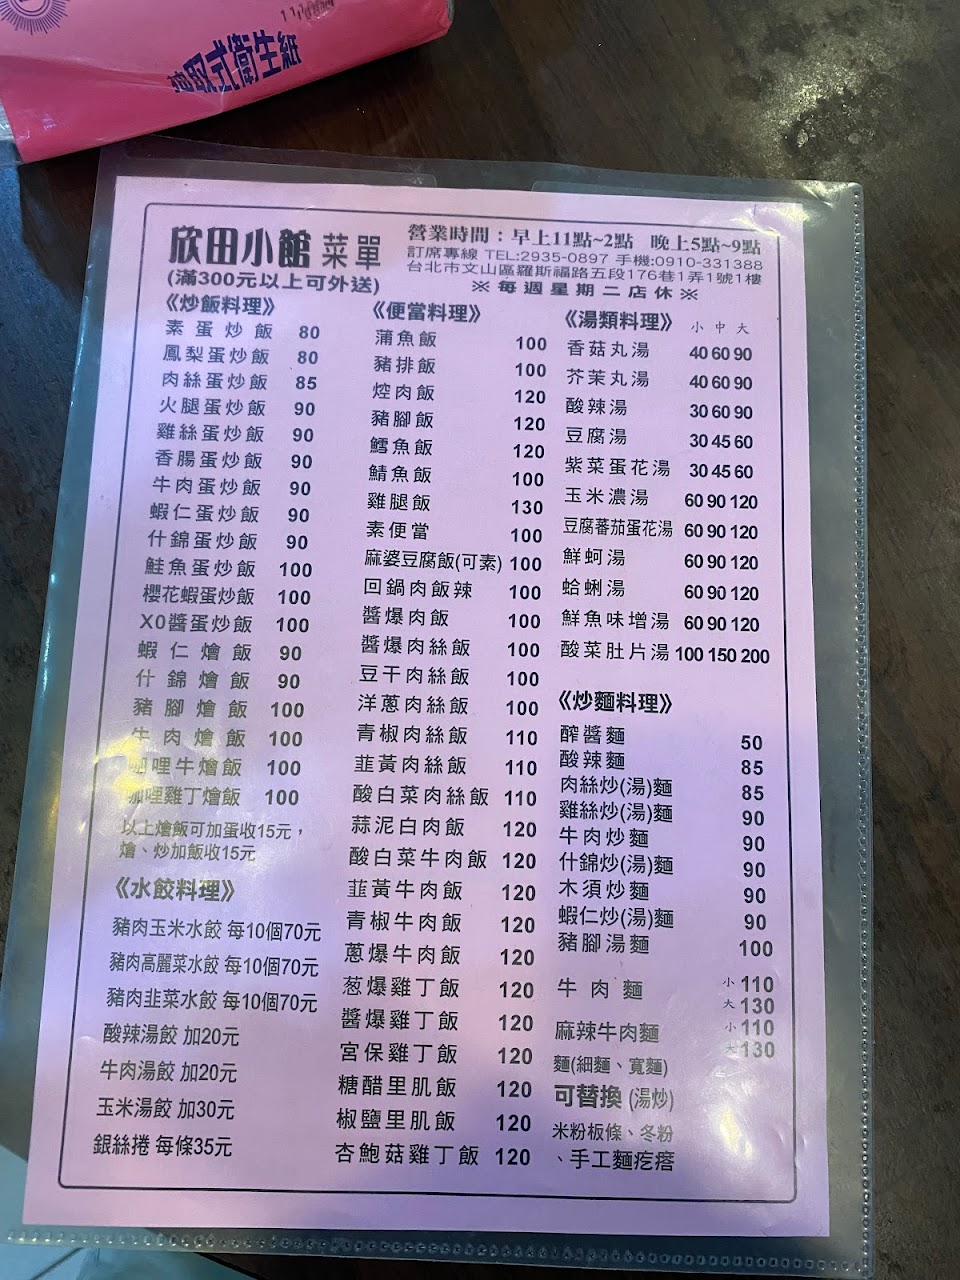 抽取式衛生紙
欣田小館 菜單
(滿300元以上可外送)
營業時間：早上11點~2點 晚上5點~9點
訂席專線 TEL:2935-0897 手機:0910-331388
台北市文山區羅斯福路五段176巷1弄1號1樓
※每週星期二店休※
《炒飯料理》
素蛋炒飯 80
鳳梨蛋炒飯 80
肉絲蛋炒飯 85
火腿蛋炒飯 90
雞絲蛋炒飯 90
香腸蛋炒飯 90
牛肉蛋炒飯 90
蝦仁蛋炒飯 90
什錦蛋炒飯 90
鮭魚蛋炒飯 100
櫻花蝦蛋炒飯 100
XO醬蛋炒飯 100
蝦仁燴飯 90
什錦燴飯 90
豬腳燴飯 100
牛肉燴飯 100
咖哩牛燴飯 100
咖哩雞丁燴飯 100
以上燴飯可加蛋收15元，
燴、炒加飯收15元
《水餃料理》
豬肉玉米水餃 每10個70元
豬肉高麗菜水餃 每10個70元
豬肉韭菜水餃 每10個70元
酸辣湯餃 加20元
牛肉湯餃 加20元
玉米湯餃 加30元
銀絲捲 每條35元
《便當料理》
蒲魚飯 100
豬排飯 100
焢肉飯 120
豬腳飯 120
鱈魚飯 120
鯖魚飯 100
雞腿飯 130
素便當 100
麻婆豆腐飯(可素) 100
回鍋肉飯辣 100
醬爆肉飯 100
醬爆肉絲飯 100
豆干肉絲飯 100
洋蔥肉絲飯 100
青椒肉絲飯 110
韮黃肉絲飯 110
酸白菜肉絲飯 110
蒜泥白肉飯 120
酸白菜牛肉飯 120
韮黃牛肉飯 120
青椒牛肉飯 120
蔥爆牛肉飯 120
葱爆雞丁飯 120
醬爆雞丁飯 120
宮保雞丁飯 120
糖醋里肌飯 120
椒鹽里肌飯 120
杏鮑菇雞丁飯 120
《湯類料理》 小 中 大
香菇丸湯 40 60 90
芥茉丸湯 40 60 90
酸辣湯 30 60 90
豆腐湯 30 45 60
紫菜蛋花湯 30 45 60
玉米濃湯 60 90 120
豆腐蕃茄蛋花湯 60 90 120
鮮蚵湯 60 90 120
蛤蜊湯 60 90 120
鮮魚味增湯 60 90 120
酸菜肚片湯 100 150 200
《炒麵料理》
醡醬麵 50
酸辣麵 85
肉絲炒(湯)麵 85
雞絲炒(湯)麵 90
牛肉炒麵 90
什錦炒(湯)麵 90
木須炒麵 90
蝦仁炒(湯)麵 90
豬腳湯麵 100
牛肉麵 小 110
大 130
麻辣牛肉麵 小 110
大 130
麵(細麵、寬麵)
可替換 (湯炒)
米粉板條、冬粉
、手工麵疙瘩